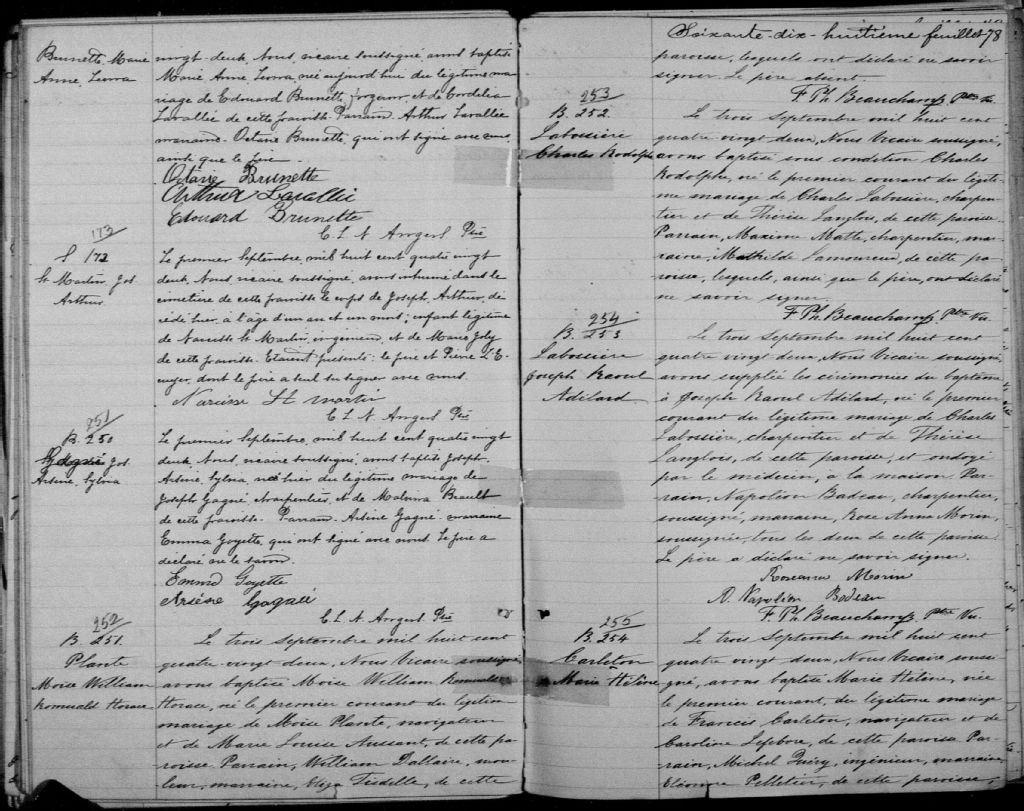 Brunette Marie
Anne, Leova
vingt-deux, Nous, vicaire soussigné avons baptisé
Marie Anne, Leova, née aujourd'hui du légitime ma-
riage de Edouard Brunette, forgeron, et de Cordelia
Lavallée de cette paroisse. Parrain, Arthur Lavallée
marraine, Octavie Brunette, qui ont signé avec nous
ainsi que le père.
Octavie Brunette
Arthur Lavallée
Edouard Brunette
Ptre
173
S 172
St Martin Jos
Arthur
Le premier Septembre, mil huit cent quatre vingt
deux, Nous, vicaire soussigné, avons inhumé dans le
cimetière de cette paroisse le corps de Joseph, Arthur, dé-
cédé hier, à l'âge d'un an et un mois; enfant légitime
de Narcisse St Martin, ingénieur, et de Marie Joly
de cette paroisse. Etaient présents: le père et Pierre
dont le père a seul su signer avec nous
Narcisse St martin
Ptre
251
B. 250
Gagné Jos.
Arsène, Sylva
Le premier Septembre, mil huit cent quatre vingt
deux, Nous, vicaire soussigné, avons baptisé Joseph,
Arsène, Sylva, né hier du légitime mariage de
Joseph Gagné charpentier, et de Malvina Brault
de cette paroisse. Parrain, Arsène Gagné marraine
Emma Goyette, qui ont signé avec nous. Le père a
déclaré ne le savoir.
Emma Goyette
Arsène
Ptre
252
B. 251.
Plante
Moise William
Romuald Horace
Le trois Septembre mil huit cent
quatre-vingt deux, Nous Vicaire soussigné,
avons baptisé Moise William Romuald
Horace, né le premier courant du légitime
mariage de Moise Plante, navigateur
et de Marie Louise Aussant, de cette pa-
roisse. Parrain, William Dallaire, mou-
leur, marraine, Tisdelle, de cette
Soixante-dix-huitième feuillet 78
paroisse, lesquels ont déclaré ne savoir
signer. Le père absent.
F. Ph. Beauchamp, Ptre Vic.
253
B. 252.
Labossière
Charles Rodolphe
Le trois Septembre mil huit cent
quatre vingt deux, Nous Vicaire soussigné,
avons baptisé sous condition Charles
Rodolphe, né le premier courant du légiti-
me mariage de Charles Labossière, charpen-
tier et de Thérèse Langlois, de cette paroisse.
Parrain, Maxime Matte, charpentier, mar-
raine, Mathilde Lamoureux, de cette pa-
roisse, lesquels, ainsi que le père, ont déclaré
ne savoir signer.
F. Ph. Beauchamp, Ptre Vic.
254
B. 253
Labossière
Joseph Raoul
Adélard
Le trois Septembre mil huit cent
quatre vingt deux, Nous Vicaire soussigné,
avons supplée les cérémonies du baptême
à Joseph Raoul Adélard, né le premier
courant du légitime mariage de Charles
Labossière, charpentier et de Thérèse
Langlois, de cette paroisse, et ondoyé
par le médecin, à la maison. Par-
rain, Napoléon Badeau, charpentier,
soussigné, marraine, Rose Anna Morin,
soussignée, tous les deux de cette paroisse.
Le père a déclaré ne savoir signer.
Roseanna Morin
Napoléon Badeau
F. Ph. Beauchamp, Ptre Vic.
255
B. 254
Carleton
Marie Hélène
Le trois Septembre mil huit cent
quatre vingt deux, Nous Vicaire soussi-
gné, avons baptisé Marie Hélène, née
le premier courant, du légitime mariage
de Francis Carleton, navigateur et de
Caroline Lefebvre, de cette paroisse. Par-
rain, Michel ingénieur, marraine,
Eléonore Pelletier, de cette paroisse,